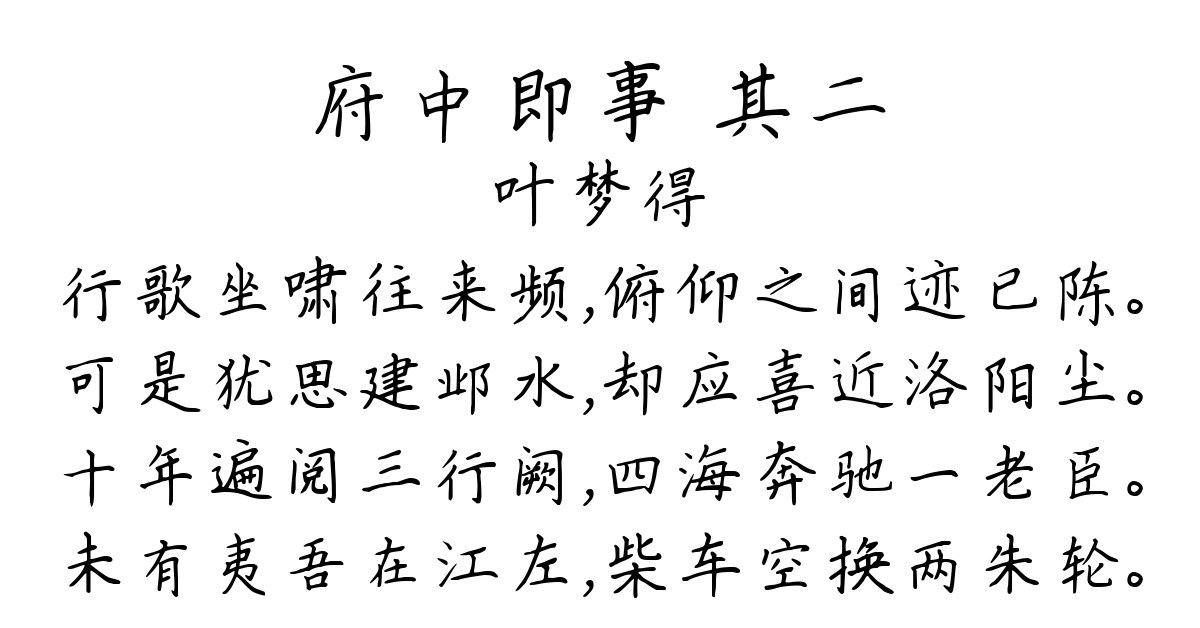 府中即事 其二
叶梦得
行歌坐啸往来频,俯仰之间迹已陈。
可是犹思建邺水,却应喜近洛阳尘。
十年遍阅三行阙,四海奔驰一老臣。
未有夷吾在江左,柴车空换两朱轮。